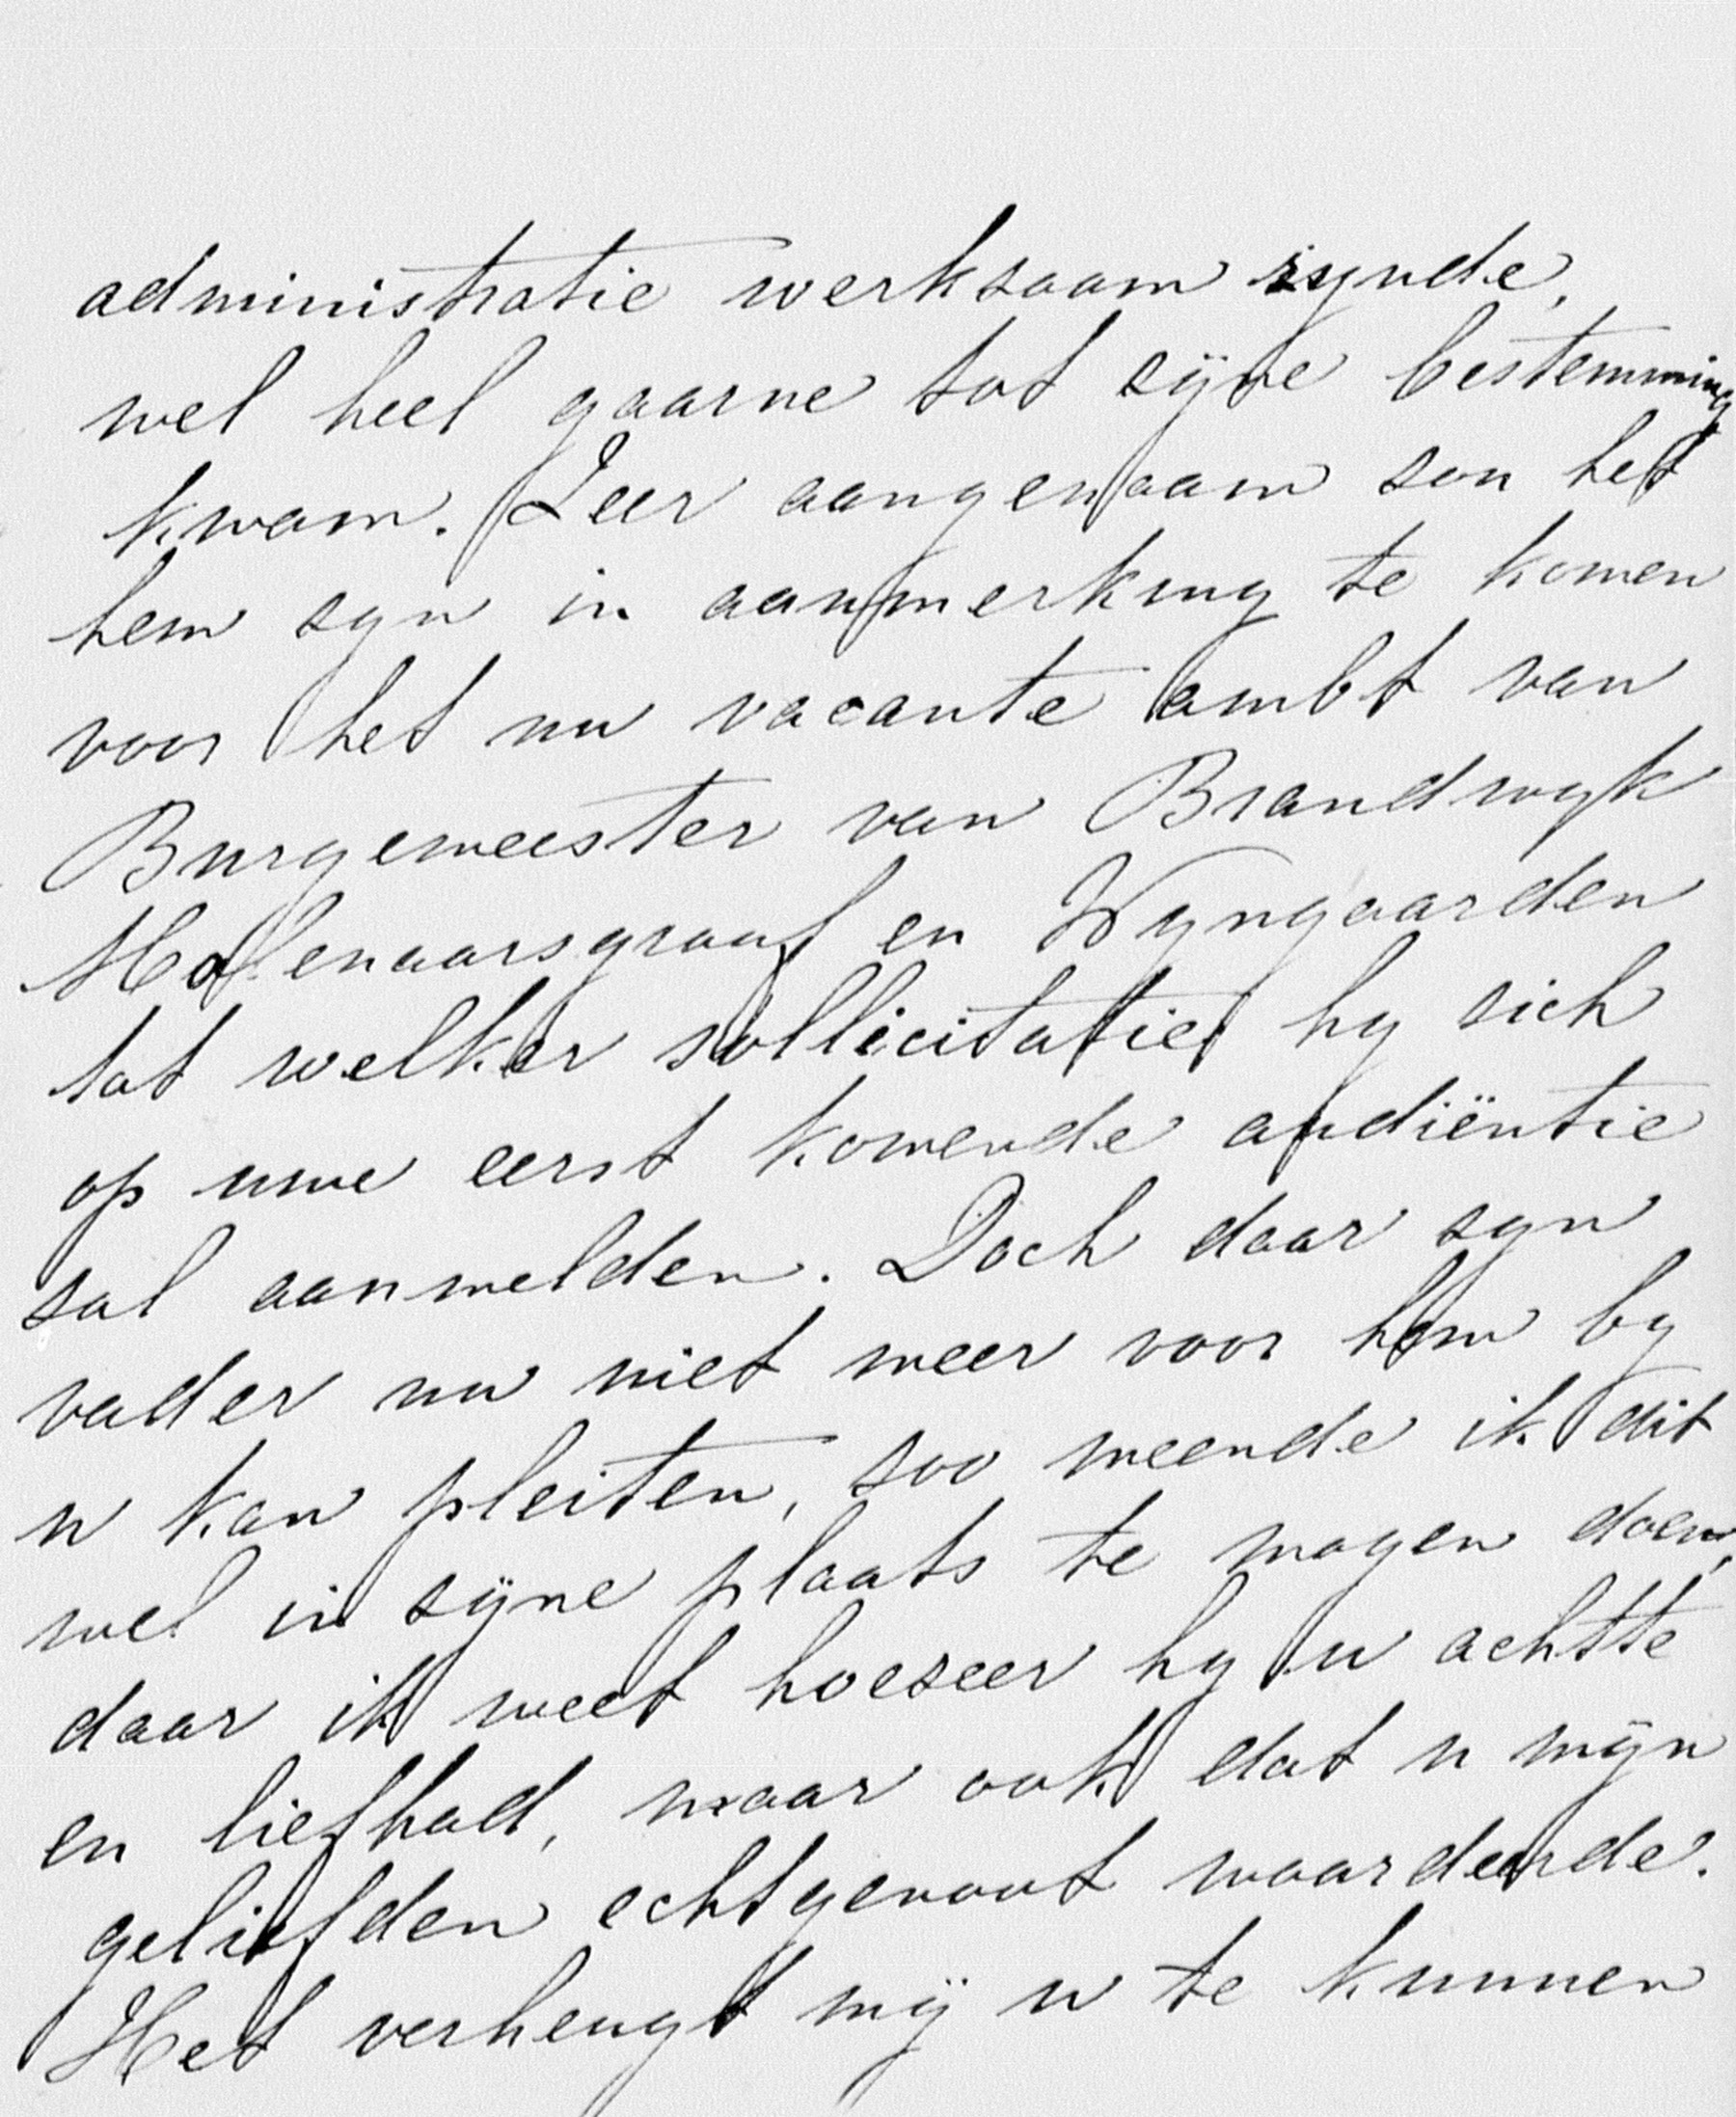 administratie werksaam synde,
wel heel gaarne tot sÿne bestemming
kwam. Zeer aangenaam sou het
hem syn in aanmerking te komen
voor het nu vacante ambt van
Burgemeester van Brandwyk
Molenaarsgraaf en Wyngaarden
tot welker sollicitatie hy sich
op uwe eerst komende audiëntie
sal aanmelden. Doch daar syn
vader nu niet meer voor hem by
u kan pleiten, soo meende ik dit
wel in sÿne plaats te mogen doen,
daar ik weet hoeseer hy u achtte
en liefhad, maar ook dat u mÿn
geliefden echtgenoot waardeerde.
Het verheugt mÿ u te kunnen